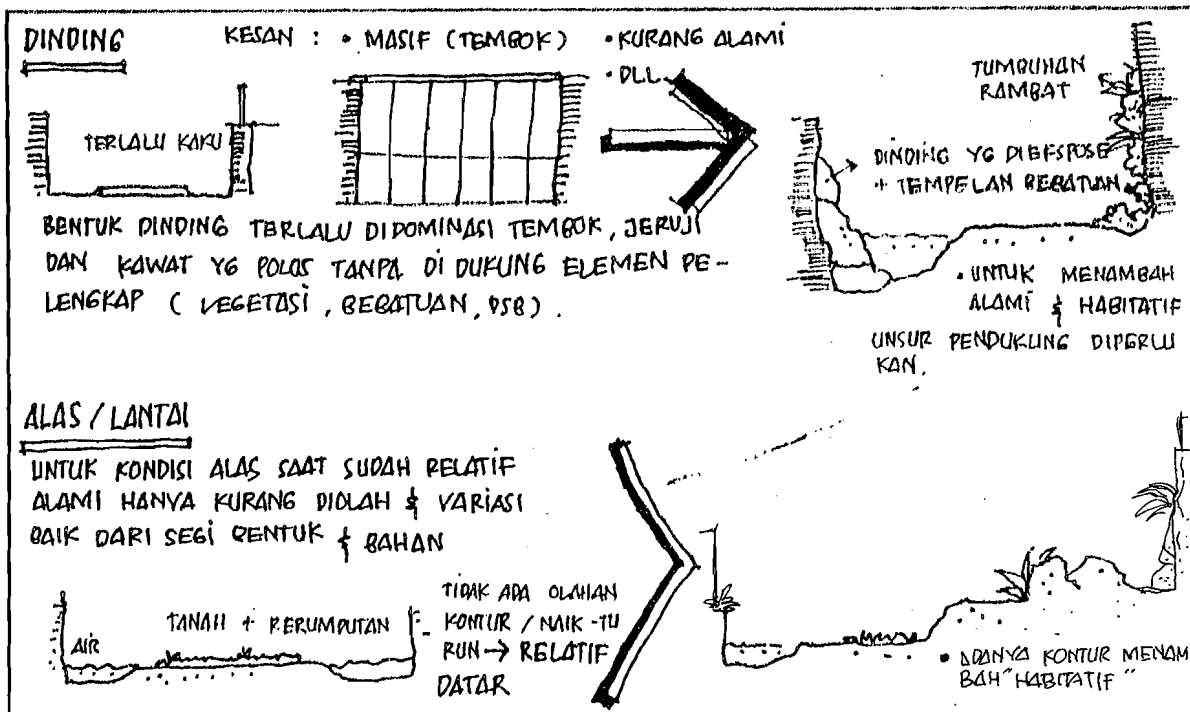 DINDING
KESAN : • MASIF (TEMBOK) • KURANG ALAMI
• DLL
TERLALU KAKU
BENTUK DINDING TERLALU DIDOMINASI TEMBOK, JERUJI
DAN KAWAT YG POLOS TANPA DI DUKUNG ELEMEN PE-
LENGKAP ( VEGETASI, BEBATUAN, DSB).
TUMBUHAN
RAMBAT
DINDING YG DIEKSPOSE
+ TEMPELAN BEBATUAN
• UNTUK MENAMBAH
ALAMI & HABITATIF
UNSUR PENDUKUNG DIPERLU
KAN.
ALAS / LANTAI
UNTUK KONDISI ALAS SAAT SUDAH RELATIF
ALAMI HANYA KURANG DIOLAH & VARIASI
BAIK DARI SEGI BENTUK & BAHAN
AIR
TANAH + RERUMPUTAN
TIDAK ADA OLAHAN
KONTUR / NAIK-TU
RUN → RELATIF
DATAR
• ADANYA KONTUR MENAM
BAH "HABITATIF"